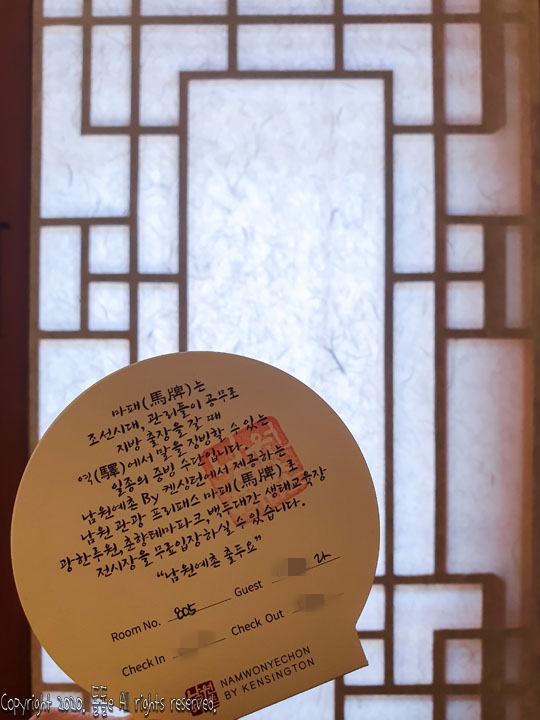 마패(馬牌)는
조선시대, 관리들이 공무로
지방 출장을 갈 때
역(驛)에서 말을 징발할 수 있는
일종의 증빙 수단입니다.
남원예촌 By 켄싱턴에서 제공하는
남원 관광 프리패스 마패(馬牌)로
광한루원, 춘향테마파크, 백두대간 생태교육장
전시장을 무료입장 하실 수 있습니다.
"남원예촌 출두요"
Room No. 805 Guest 라
Check In Check Out
NAMWONYECHON
BY KENSINGTON
Copyright 2020. All rights reserved.